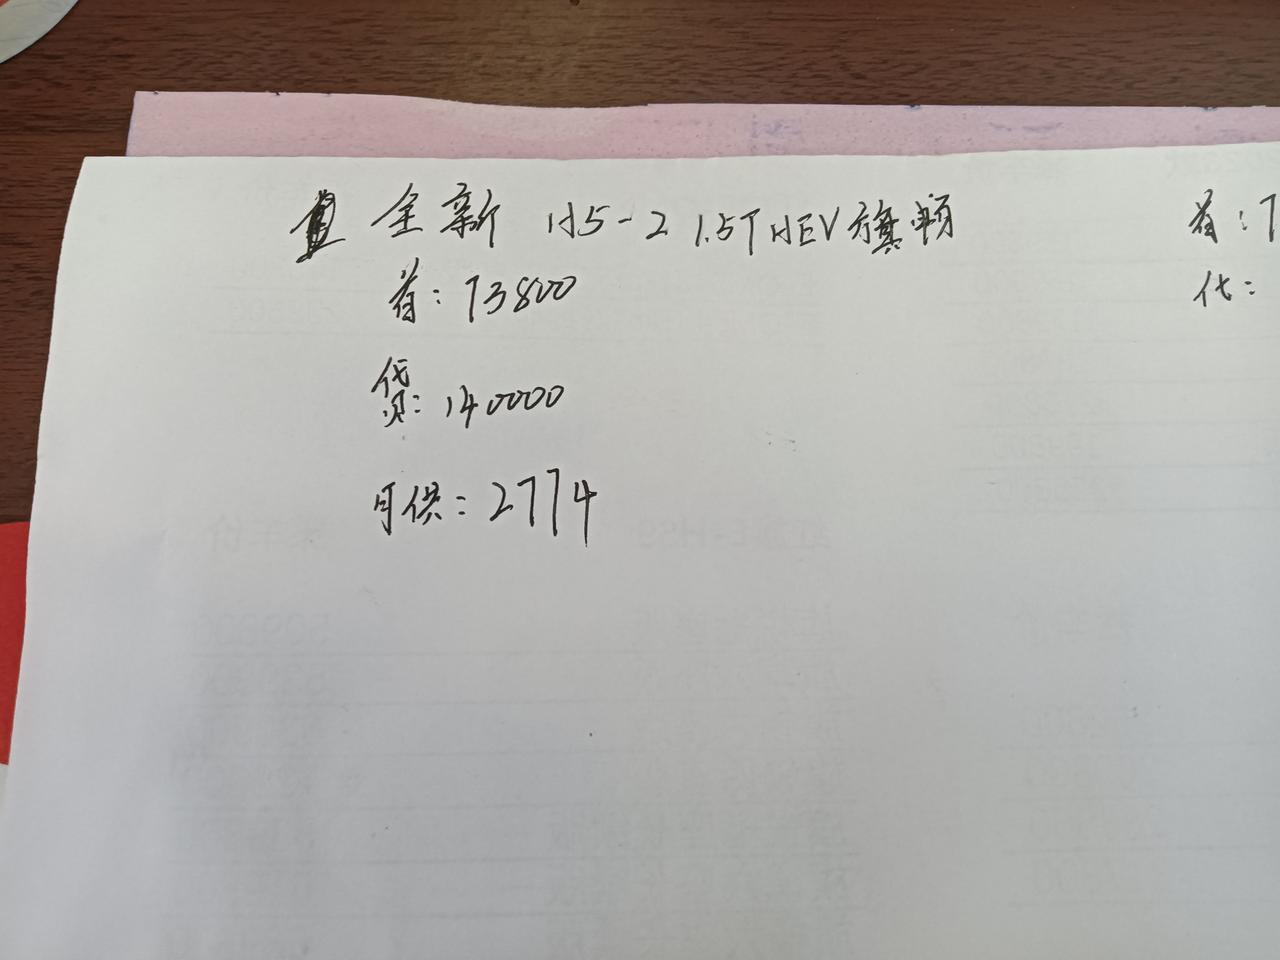 全新 H5-2 1.5T HEV旗领
首：73800
贷：140000
月供：2774
首：7
代：